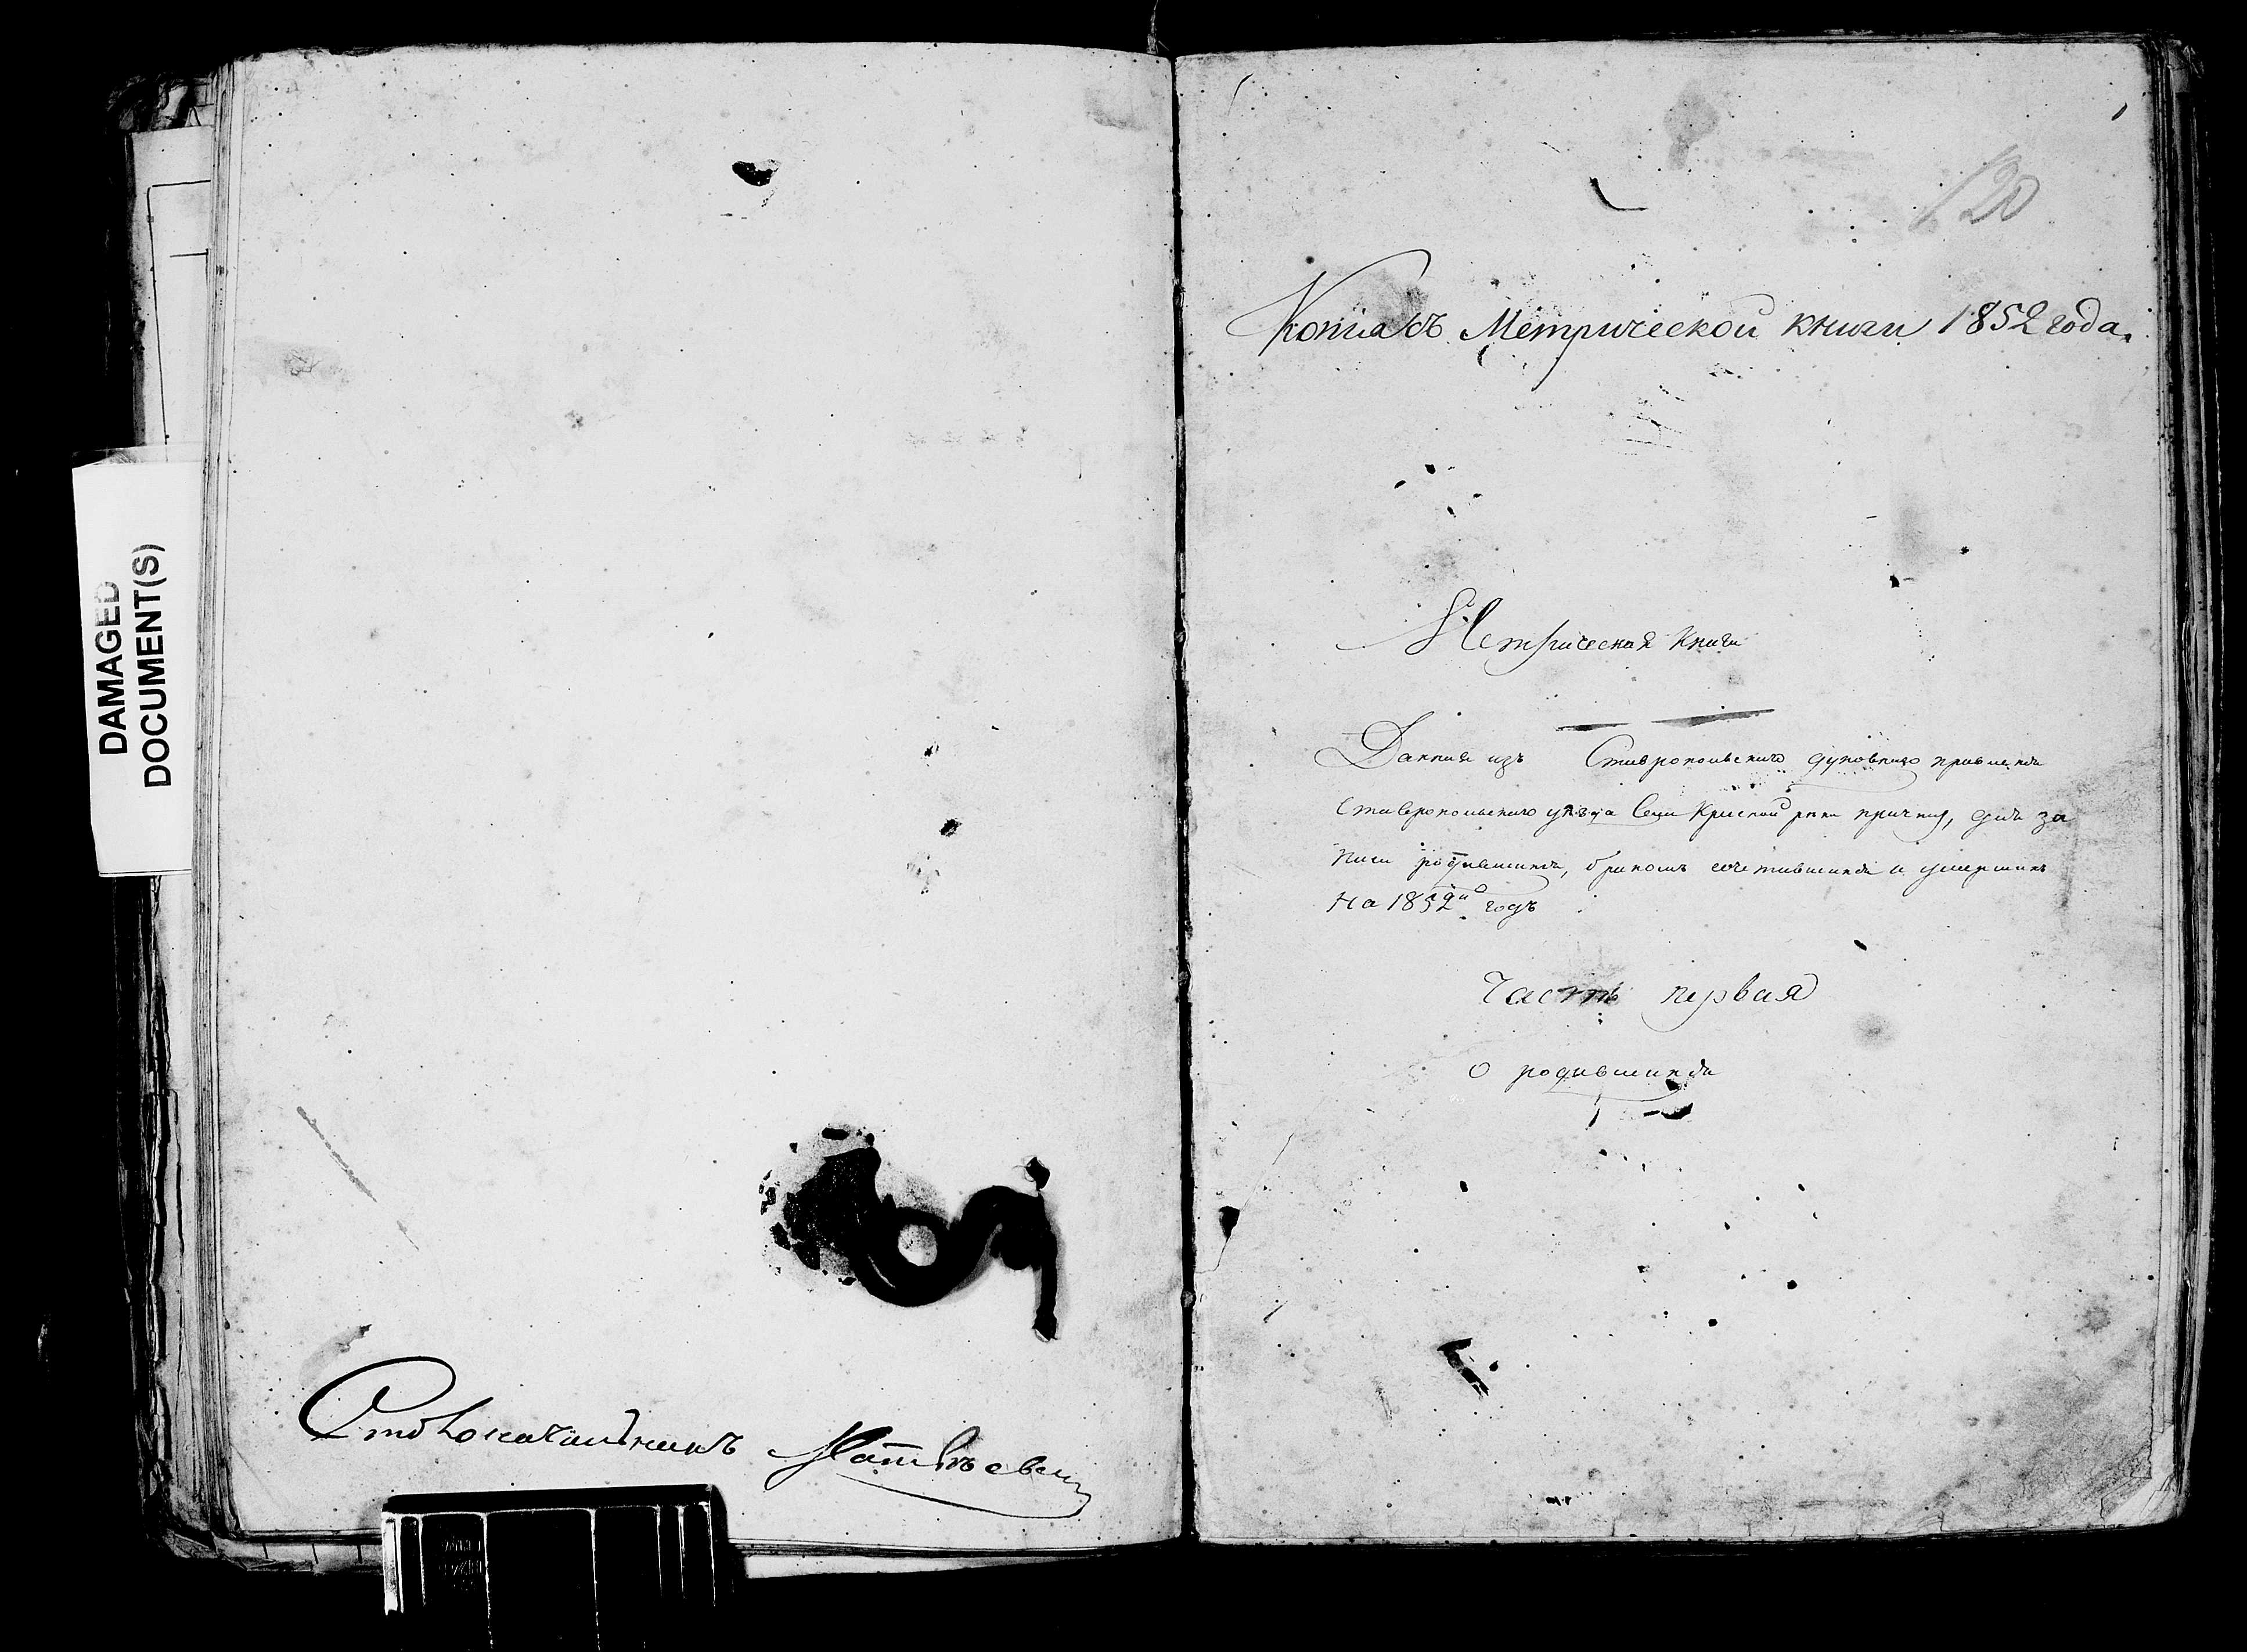 DAMAGED
DOCUMENT(S)
Столоначальникъ Матвѣевъ
120
Копiя съ Метрической книги 1852 года.
Метрическая книга
Данная изъ Ставропольскаго духовнаго правленiя
Ставропольского уѣзда Села Красной рѣки причту, для за
писи родившихся, бракомъ сочетавшихся и умершихъ
на 1852й годъ
Часть первая
о родившихся